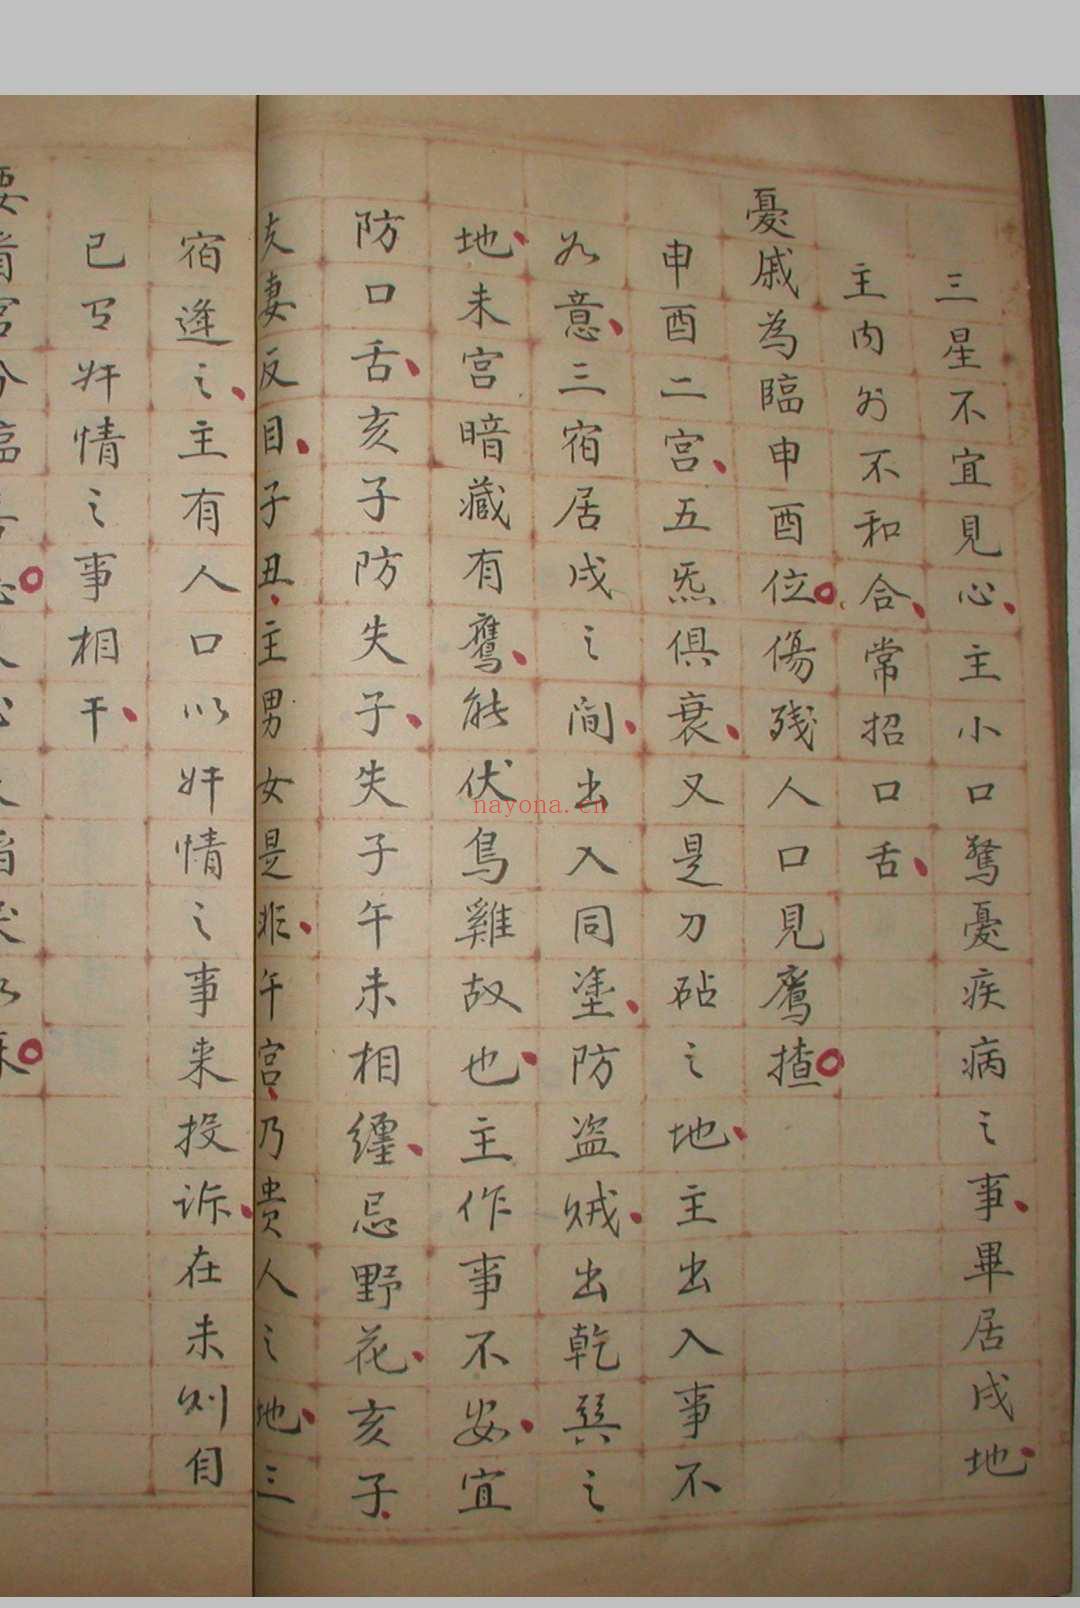 三星不宜見心主小口驚憂疾病之事畢居戌地
主內外不和合常招口舌
憂戚為臨申酉位傷殘人口見鷹揸
申酉二宮五炁俱衰又是刀砧之地主出入事不
如意三宿居戌之間出入同塗防盜賊出乾巽之
地未宮暗藏有鷹能伏鳥雞故也主作事不安宜
防口舌亥子防失子失子午未相纏忌野花亥子
夫妻反目子丑主男女是非午宮乃貴人之地三
宿逢之主有人口以奸情之事来投訴在未则自
已与奸情之事相干
nayona.cn